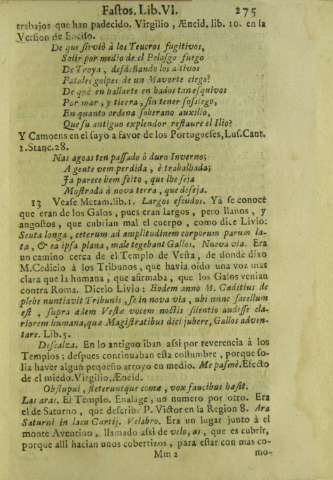 Fastos. Lib. VI. 275
trabajos que han padecido. Virgilio, Æneid. lib. 10. en la
Version de Encifo.
De que sirviò à los Teucros fugitivos,
Salir por medio de el Pelasgo fuego
De Troya, desdeñando los altivos
Fatales golpes de un Mavorte ciego?
De què en hallarse en hados tan esquivos
Por mar, y tierra, sin tener sosiego,
En quanto ordena soberano auxilio,
Que su antiguo explendor restaure el Ilio?
Y Camoens en el suyo a favor de los Portugueses, Lus. Cant.
1. Stanc. 28.
Nas agoas ten passado ò duro Inverno;
A gente vem perdida, è trabalhada;
Ja parece bem feito, que lhe seja
Mostrada à nova terra, que deseja.
13 Vease Metam. lib. 1. Largos escudos. Ya se conocè
que eran de los Galos, pues eran largos, pero llanos, y
angostos, que cubrian mal el cuerpo, como dice Livio:
Scuta longa, ceterum ad amplitudinem corporum parum la-
ta, & ea ipsa plana, male tegebant Gallos. Nueva via. Era
un camino cerca de el Templo de Vesta, de donde dixo
M. Cedicio à los Tribunos, que havia oido una voz mas
clara que la humana, que afirmaba, que los Galos venian
contra Roma. Dicelo Livio: Eodem anno M. Caditius de
plebe nuntiavit Tribunis, se in nova via, ubi nunc sacellum
est, supra ædem Vestæ vocem noctis silentio audisse cla-
riorem humana, que Magistratibus dici jubere, Gallos adven-
tare. Lib. 5.
Descalza. En lo antiguo iban assi por reverencia à los
Templos; despues continuaban esta costumbre, porque so-
lia haver algun pequeño arroyo en medio. Me pasmè. Efecto
de el miedo. Virgilio, Æneid.
Obstupui, steteruntque comæ, vox faucibus hæsit.
Las aras. El Templo. Enalage, un numero por otro. Era
el de Saturno, que describe P. Victor en la Region 8. Ara
Saturni in lacu Curtij. Velabro. Era un lugar junto à el
monte Aventino, llamado assi de velo, as, que es cubrir,
porque alli hacian unos cobertizos, para estar con mas co-
Mm 2 mo-